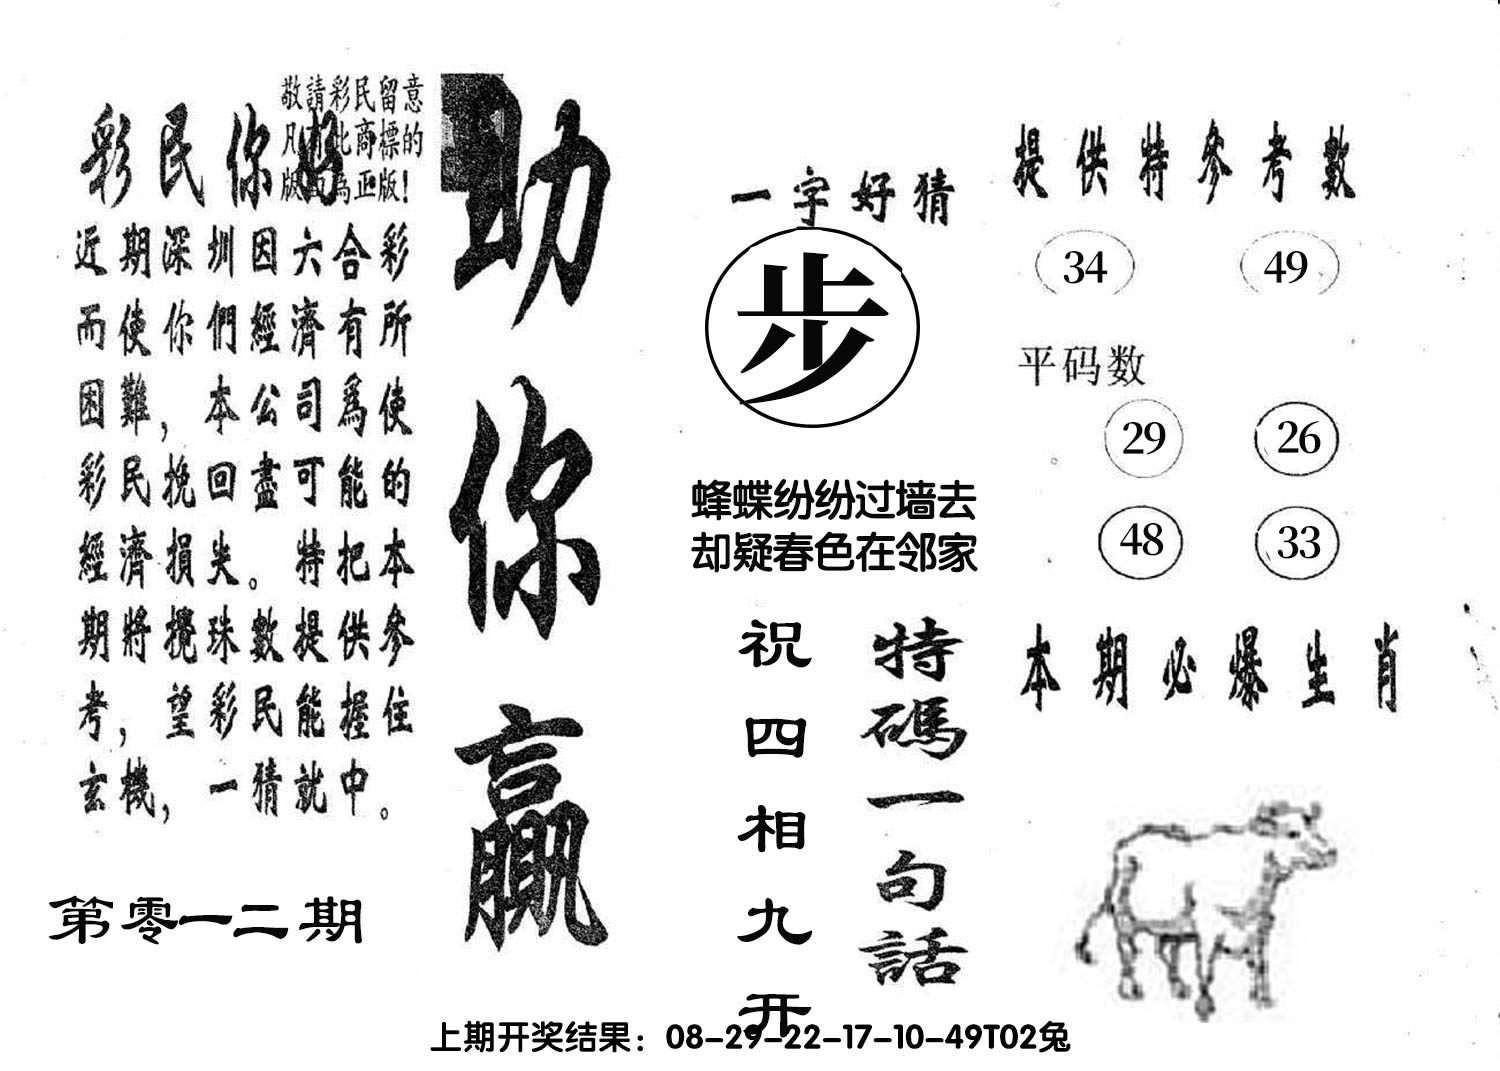 敬請彩民留意
凡有此商標的
版面為正版!
彩民你好
近期深圳因六合彩
而使你們經濟有所
困難，本公司爲使
彩民挽回盡可能的
經濟損失。特把本
期將攪珠數提供參
考，望彩民能握住
玄機，一猜就中。
第零一二期
助你贏
一字好猜
步
蜂蝶纷纷过墙去
却疑春色在邻家
特碼一句話
祝四相九开
提供特參考數
34 49
平码数
29 26
48 33
本期必爆生肖
上期开奖结果：08-29-22-17-10-49T02兔